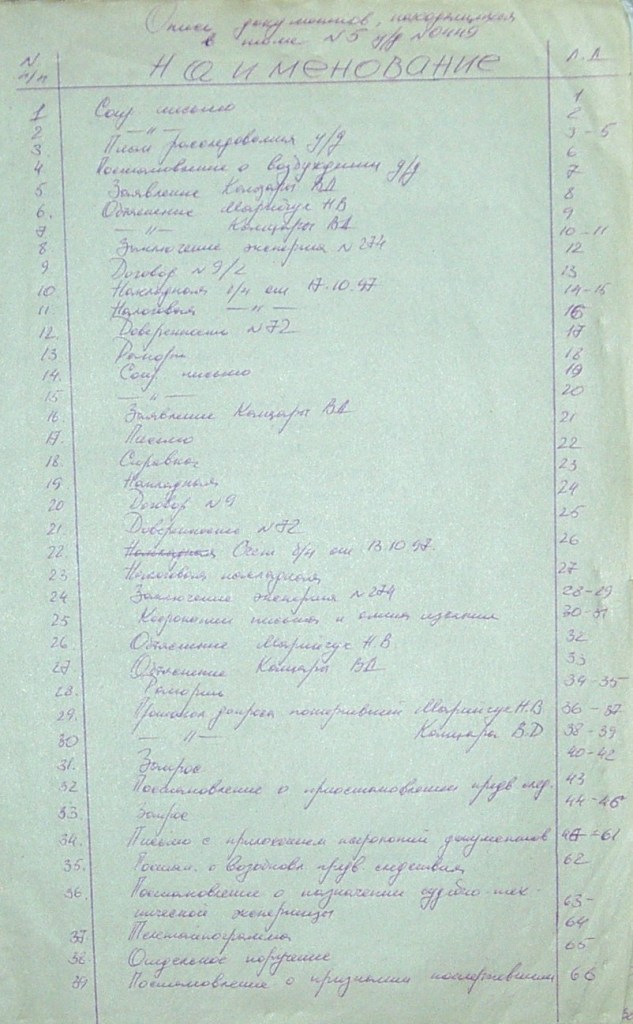 Опись документов, находящихся
в томе №5 у/д №0449
N п/п Наименование Л.Д
1 Сопр. письмо 1
2 —"— 2
3. План расследования у/д 3-5
4 Постановление о возбуждении у/д 6
5 Заявление Комцары ВД 7
6. Объяснение Марийчук Н.В 8
7 —"— Комцары ВД 9
8 Заключение экспертиз №274 10-11
9 Договор №9/2 12
10. Накладная б/н от 17.10.97 13
11 Налоговая —"— 14-15
12. Доверенность №72 16
13 Рапорт 17
14. Сопр. письмо 18
15 —"— 19
16. Заявление Комцары ВД 20
17. Письмо 21
18. Справка 22
19 Накладная 23
20 Договор №9 24
21. Доверенность №72 25
22. Счет б/н от 13.10.97. 26
23 Налоговая накладная 27
24 Заключение экспертиз №274 28-29
25 Ксерокопии письма и 30-31
26 Объяснение Марийчук Н.В. 32
27 Объяснение Комцары ВД 33
28. Рапорты 34-35
29. Протокол допроса потерпевшей Марийчук Н.В 36-37
30 —"— Комцары В.Д 38-39
31. Запрос 40-42
32 Постановление о приостановлении предв след. 43
33. Запрос 44-46
34. Письмо с приложением ксерокопий документов -61
35. Постан. о возобновл предв. следствия 62
36. Постановление о назначении судебно-тех-
нической экспертизы 63-
37. 64
38 Отдельное поручение 65
39 Постановление о признании потерпевшим 66